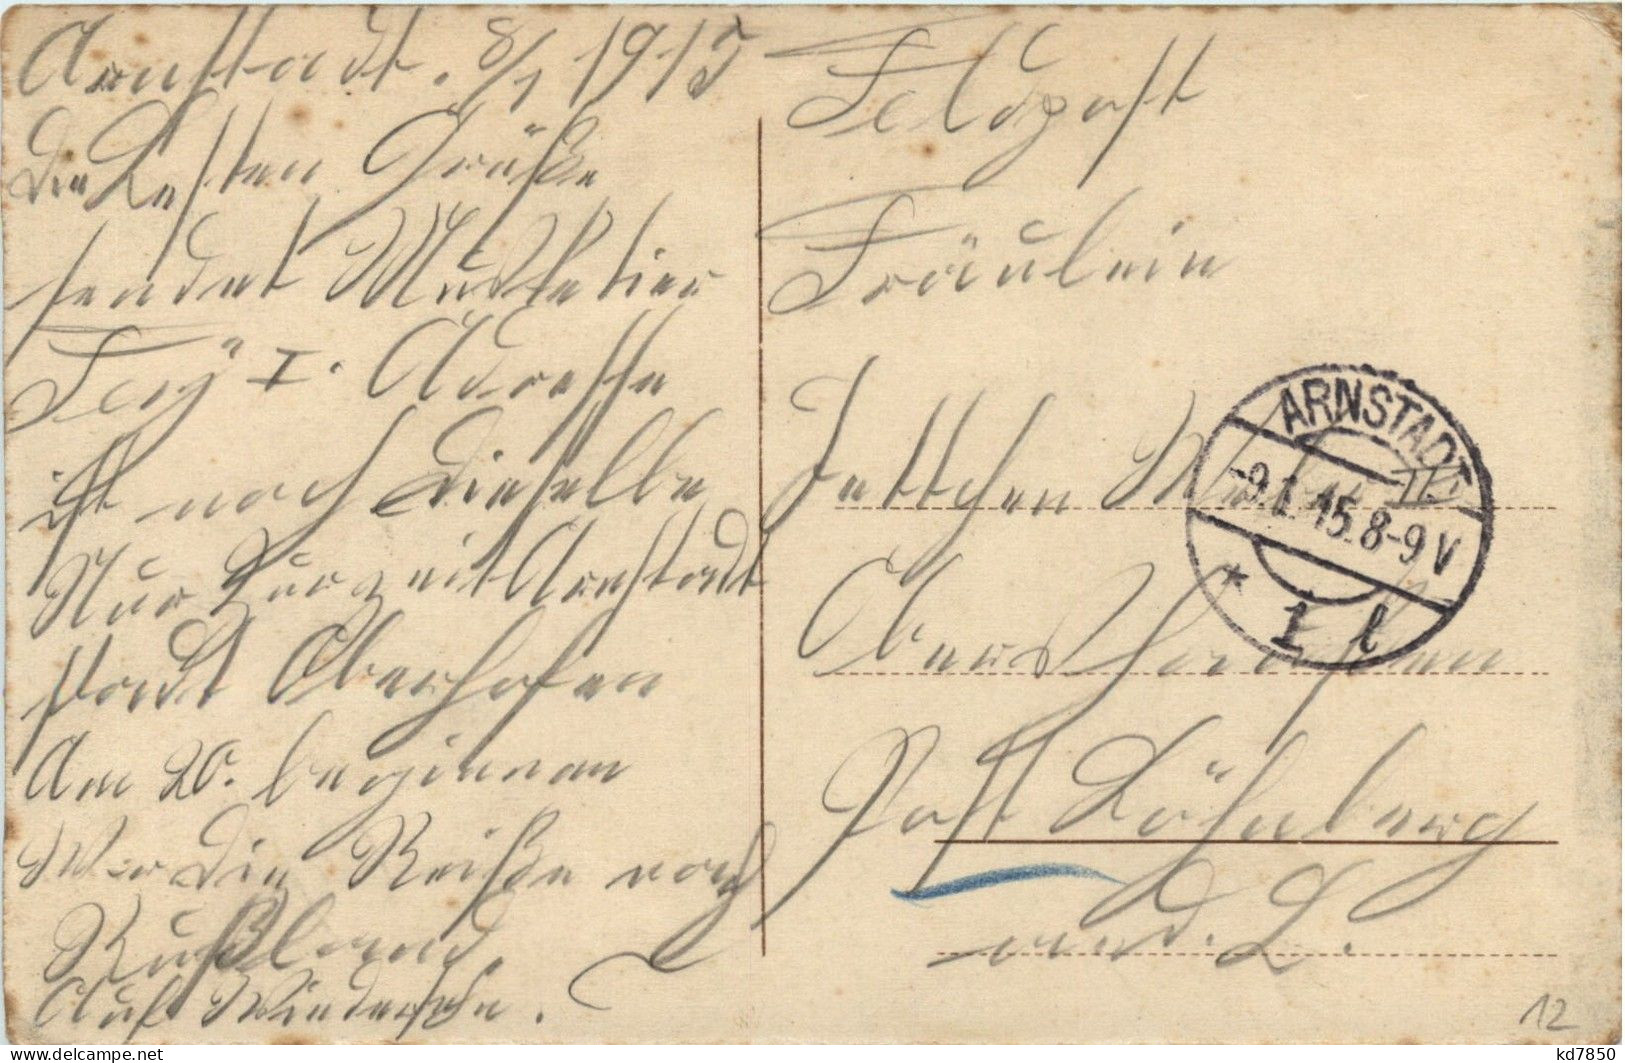 Arnstadt. 8/1 1915
Die Besten Grüße
sendet Musketier
Fey I. Adresse
ist noch Dieselbe
Nur kurzzeit Arnstadt
statt Oberhofen
Am 20. beginnen
Wir die Reiße nach
Rußland.
Auf Wiedersehn.
Feldpost
Fräulein
Jettchen
Obershausen
Post Löhnberg
a. d. L.
ARNSTADT
-9.1.15.8-9V
* 1 l
12
delcampe.net
kd7850